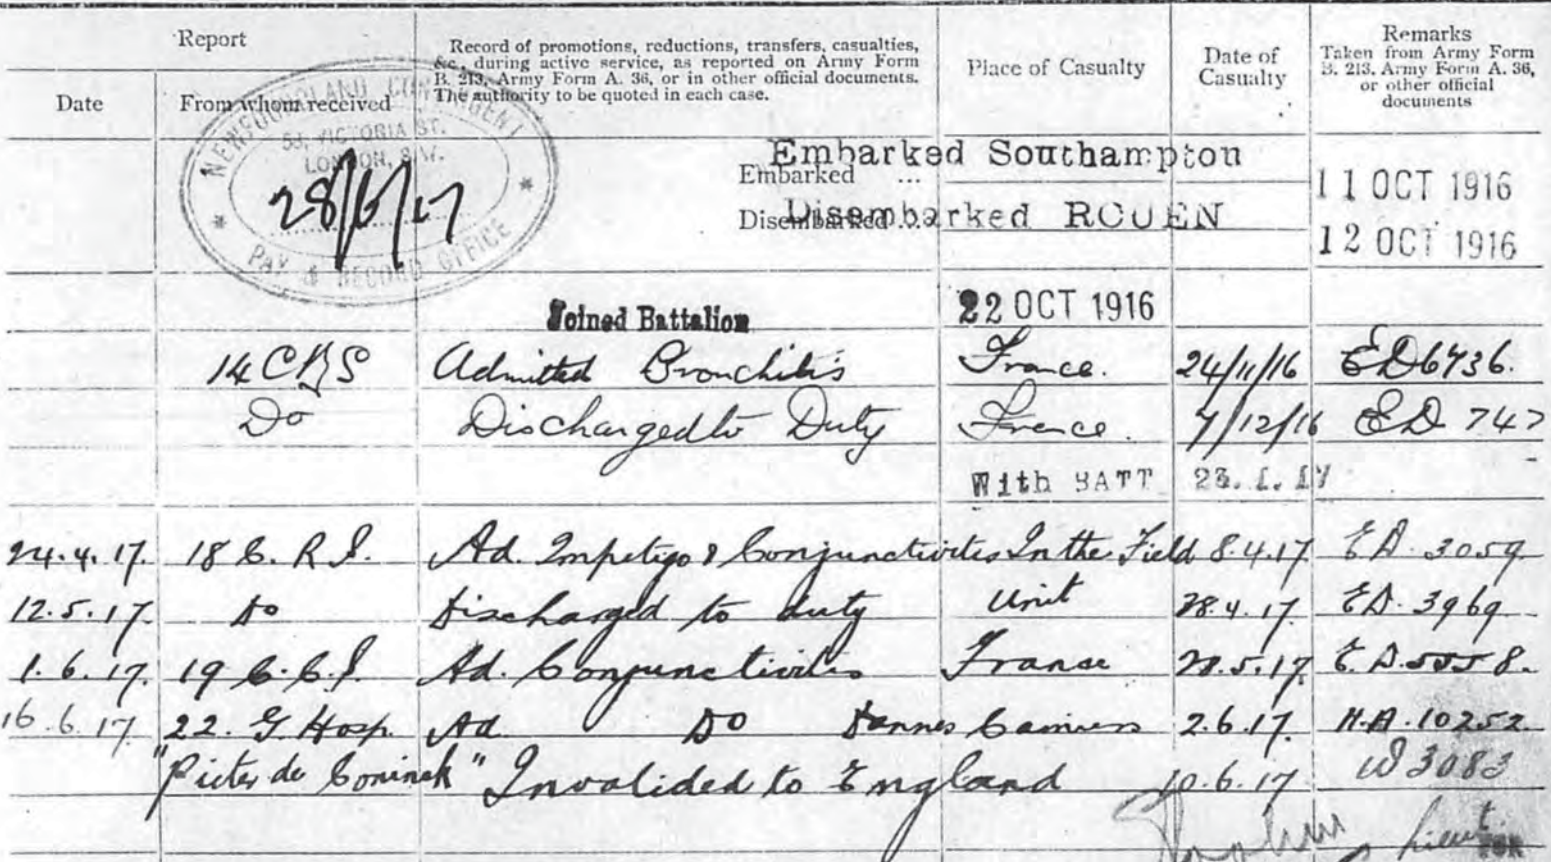 Report
Record of promotions, reductions, transfers, casualties, &c., during active service, as reported on Army Form B. 213, Army Form A. 36, or in other official documents. The authority to be quoted in each case.
Place of Casualty
Date of Casualty
Remarks
Taken from Army Form B. 213, Army Form A. 36, or other official documents
Date
From whom received
NEWFOUNDLAND CONTINGENT
53, VICTORIA ST.
LONDON, S.W.
28/6/17
PAY & RECORD OFFICE
Embarked Southampton
Embarked ...
11 OCT 1916
Disembarked ...
Disembarked ROUEN
12 OCT 1916
Joined Battalion 22 OCT 1916
14 Admitted Bronchitis France. 24/11/16 ED6736.
Do Discharged to Duty France. 7/12/16 ED 747
With BATT 23.1.17
24.4.17. 18 C.R.S. Ad. Impetigo & Conjunctivites In the Field 8.4.17. ED. 3059
12.5.17. Do Discharged to duty Unit 28.4.17. ED. 3969
1.6.17. 19 C.C.S. Ad. Conjunctivitis France 28.5.17. E.D. 5558.
16.6.17. 22. G. Hosp. Ad. Do Dannes Camiers 2.6.17. H.A. 10252
"Pieter de Coninck" Invalided to England 10.6.17. W3083
Lieut.